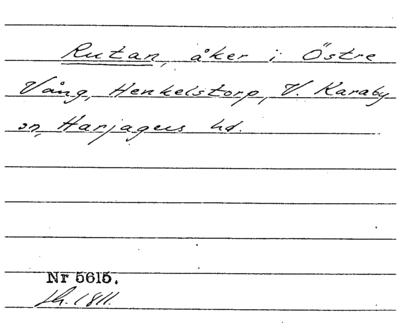 Rutan, åker i Östre
Vång, Henkelstorp, V. Karaby
sn, Harjagers hd.
Nr 5615.
Sk. 1811.